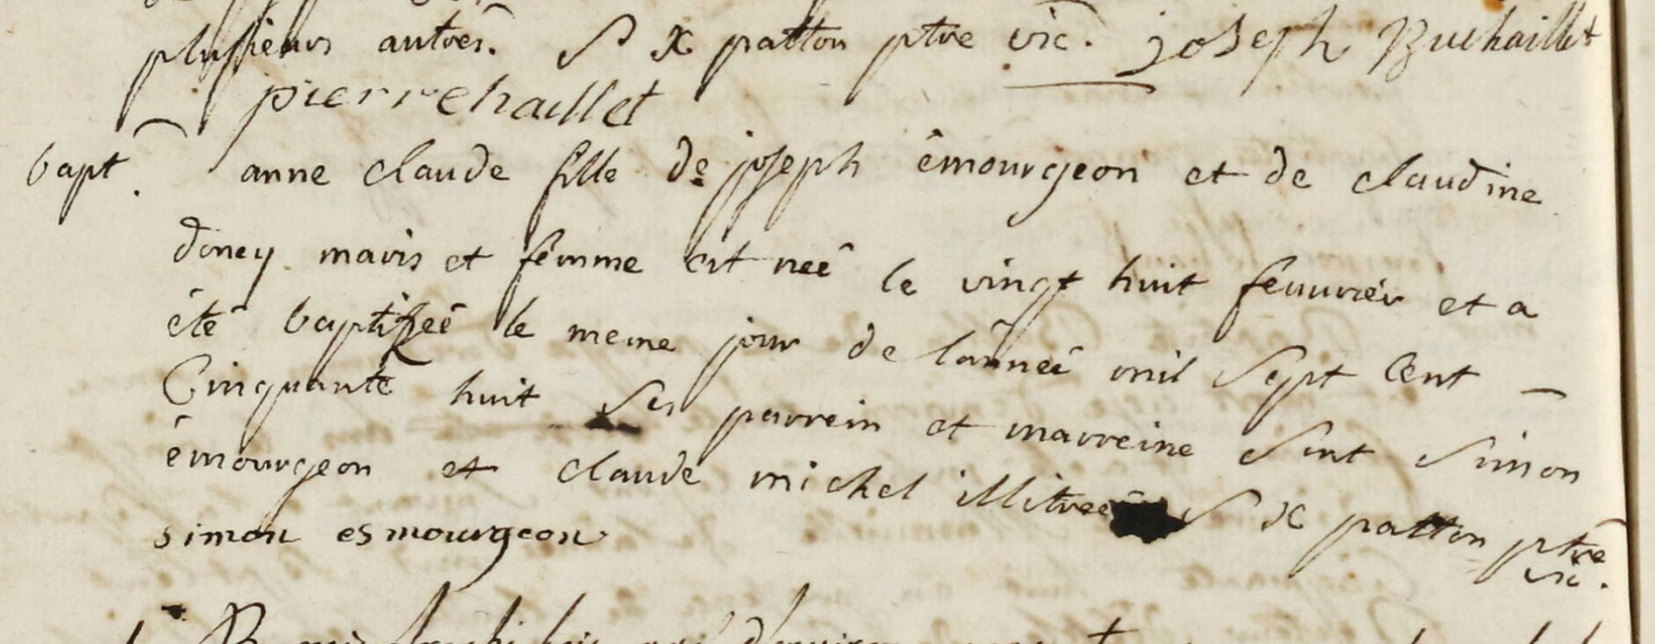 plusieurs autres. S x patton ptre vic. joseph Buhaillet
pierrehaillet
bapt. anne claude fille de joseph êmourgeon et de claudine
doney maris et femme est neê le vingt huit feuvrier et a
êtê baptiseê le meme jour de lanneê mil sept Cent
Cinquante huit ses parrein et marreine sont simon
êmourgeon et claude michel illitreê S x patton ptre
vic.
simon esmourgeon